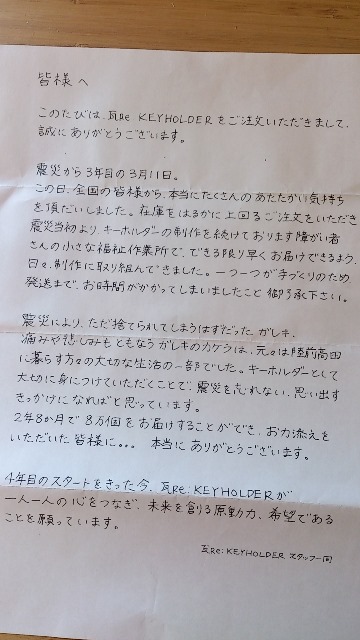 皆様へ
このたびは、瓦Re KEYHOLDERをご注文いただきまして、
誠にありがとうございます。
震災から3年目の3月11日。
この日、全国の皆様から、本当にたくさんのあたたかい気持ち
を頂だいしました。在庫をはるかに上回るご注文をいただき
震災当初より、キーホルダーの制作を続けております障がい者
さんの小さな福祉作業所で、できる限り早くお届けできるよう、
日々、制作に取り組んできました。一つ一つが手づくりのため
発送まで、お時間がかかってしまいましたこと 御了承下さい。
震災により、ただ捨てられてしまうはずだった、ガレキ。
痛みや悲しみもともなうガレキのカケラは、元々は陸前高田
に暮らす方々の大切な生活の一部でした。キーホルダーとして
大切に身につけていただくことで、震災を忘れない、思い出す
きっかけになればと思っています。
2年8か月で8万個をお届けすることができ、お力添えを
いただいた皆様に。。。 本当にありがとうございます。
4年目のスタートをきった今、瓦Re:KEYHOLDERが
一人一人の心をつなぎ、未来を創る原動力、希望である
ことを願っています。
瓦Re:KEYHOLDER スタッフ一同